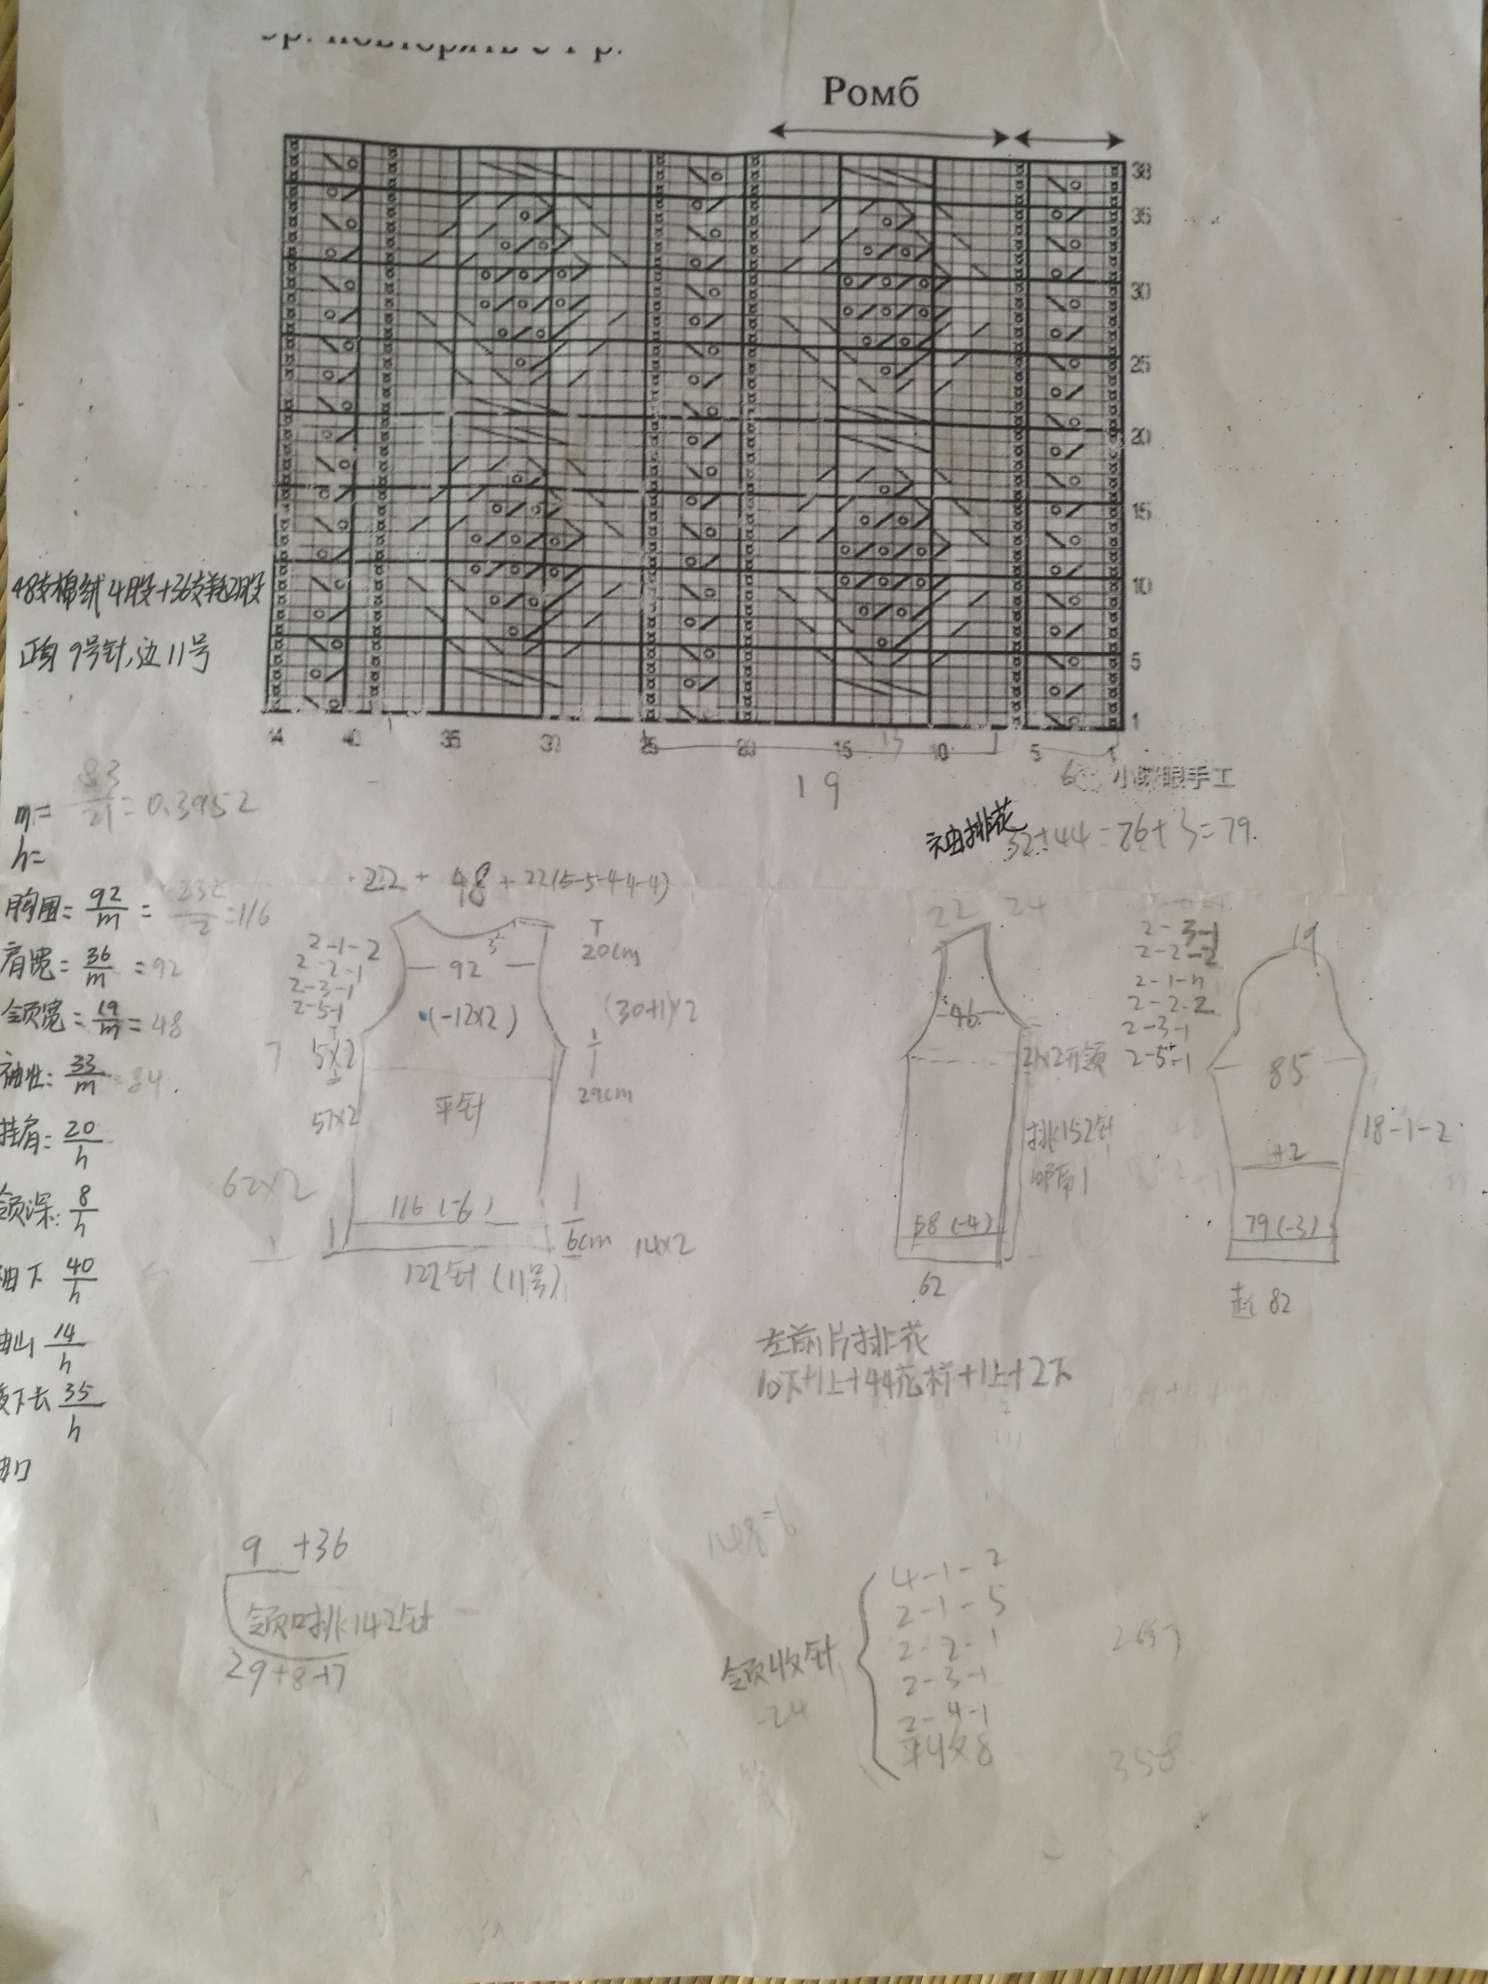 Ромб
38
35
30
25
20
15
10
5
1
44 40 35 30 25 20 15 10 5 1
19
6
小 眼手工
48支棉绒4股+36支羊毛2股
正身9号针,边11号
m= 83/21 = 0.3952
h=
胸围= 92/m = 232/2 =116
肩宽= 36/m =92
领宽= 19/m =48
袖壮: 33/m =84
挂肩: 20/h
领深: 8/h
袖下 40/h
袖山 14/h
腋下长 35/h
袖口
袖排花
32+44=76+3=79.
22+48+22(5-5-4-4-4)
2-1-2
2-2-1
2-3-1
2-5-1
92
(-12×2)
20cm
(30+1)×2
7
5×2
平针
29cm
57×2
62×2
116(-6)
6cm 14×2
122针(11号)
22 24
46
21×2开领
挑152针
58(-4)
62
2-3-1
2-2-2
2-1-n
2-2-2
2-3-1
2-5-1
19
85
18-1-2
+2
79(-3)
起82
左前片排花
10下+1上+44花样+1上+2下
9 +36
领口挑142针
29+8+7
领收针
-24
4-1-2
2-1-5
2-2-1
2-3-1
2-4-1
平收8
358